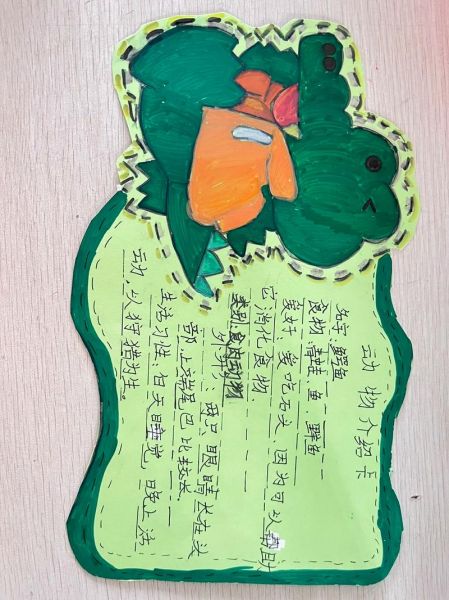 动物介绍卡
名字:鳄鱼
食物:青蛙、鱼、鲜鱼
爱好:爱吃石头,因为可以帮助
它消化食物
类别:食肉动物
外形:两只眼睛长在头
部上端尾巴比较长
生活习性:白天睡觉,晚上活
动,以狩猎为生。